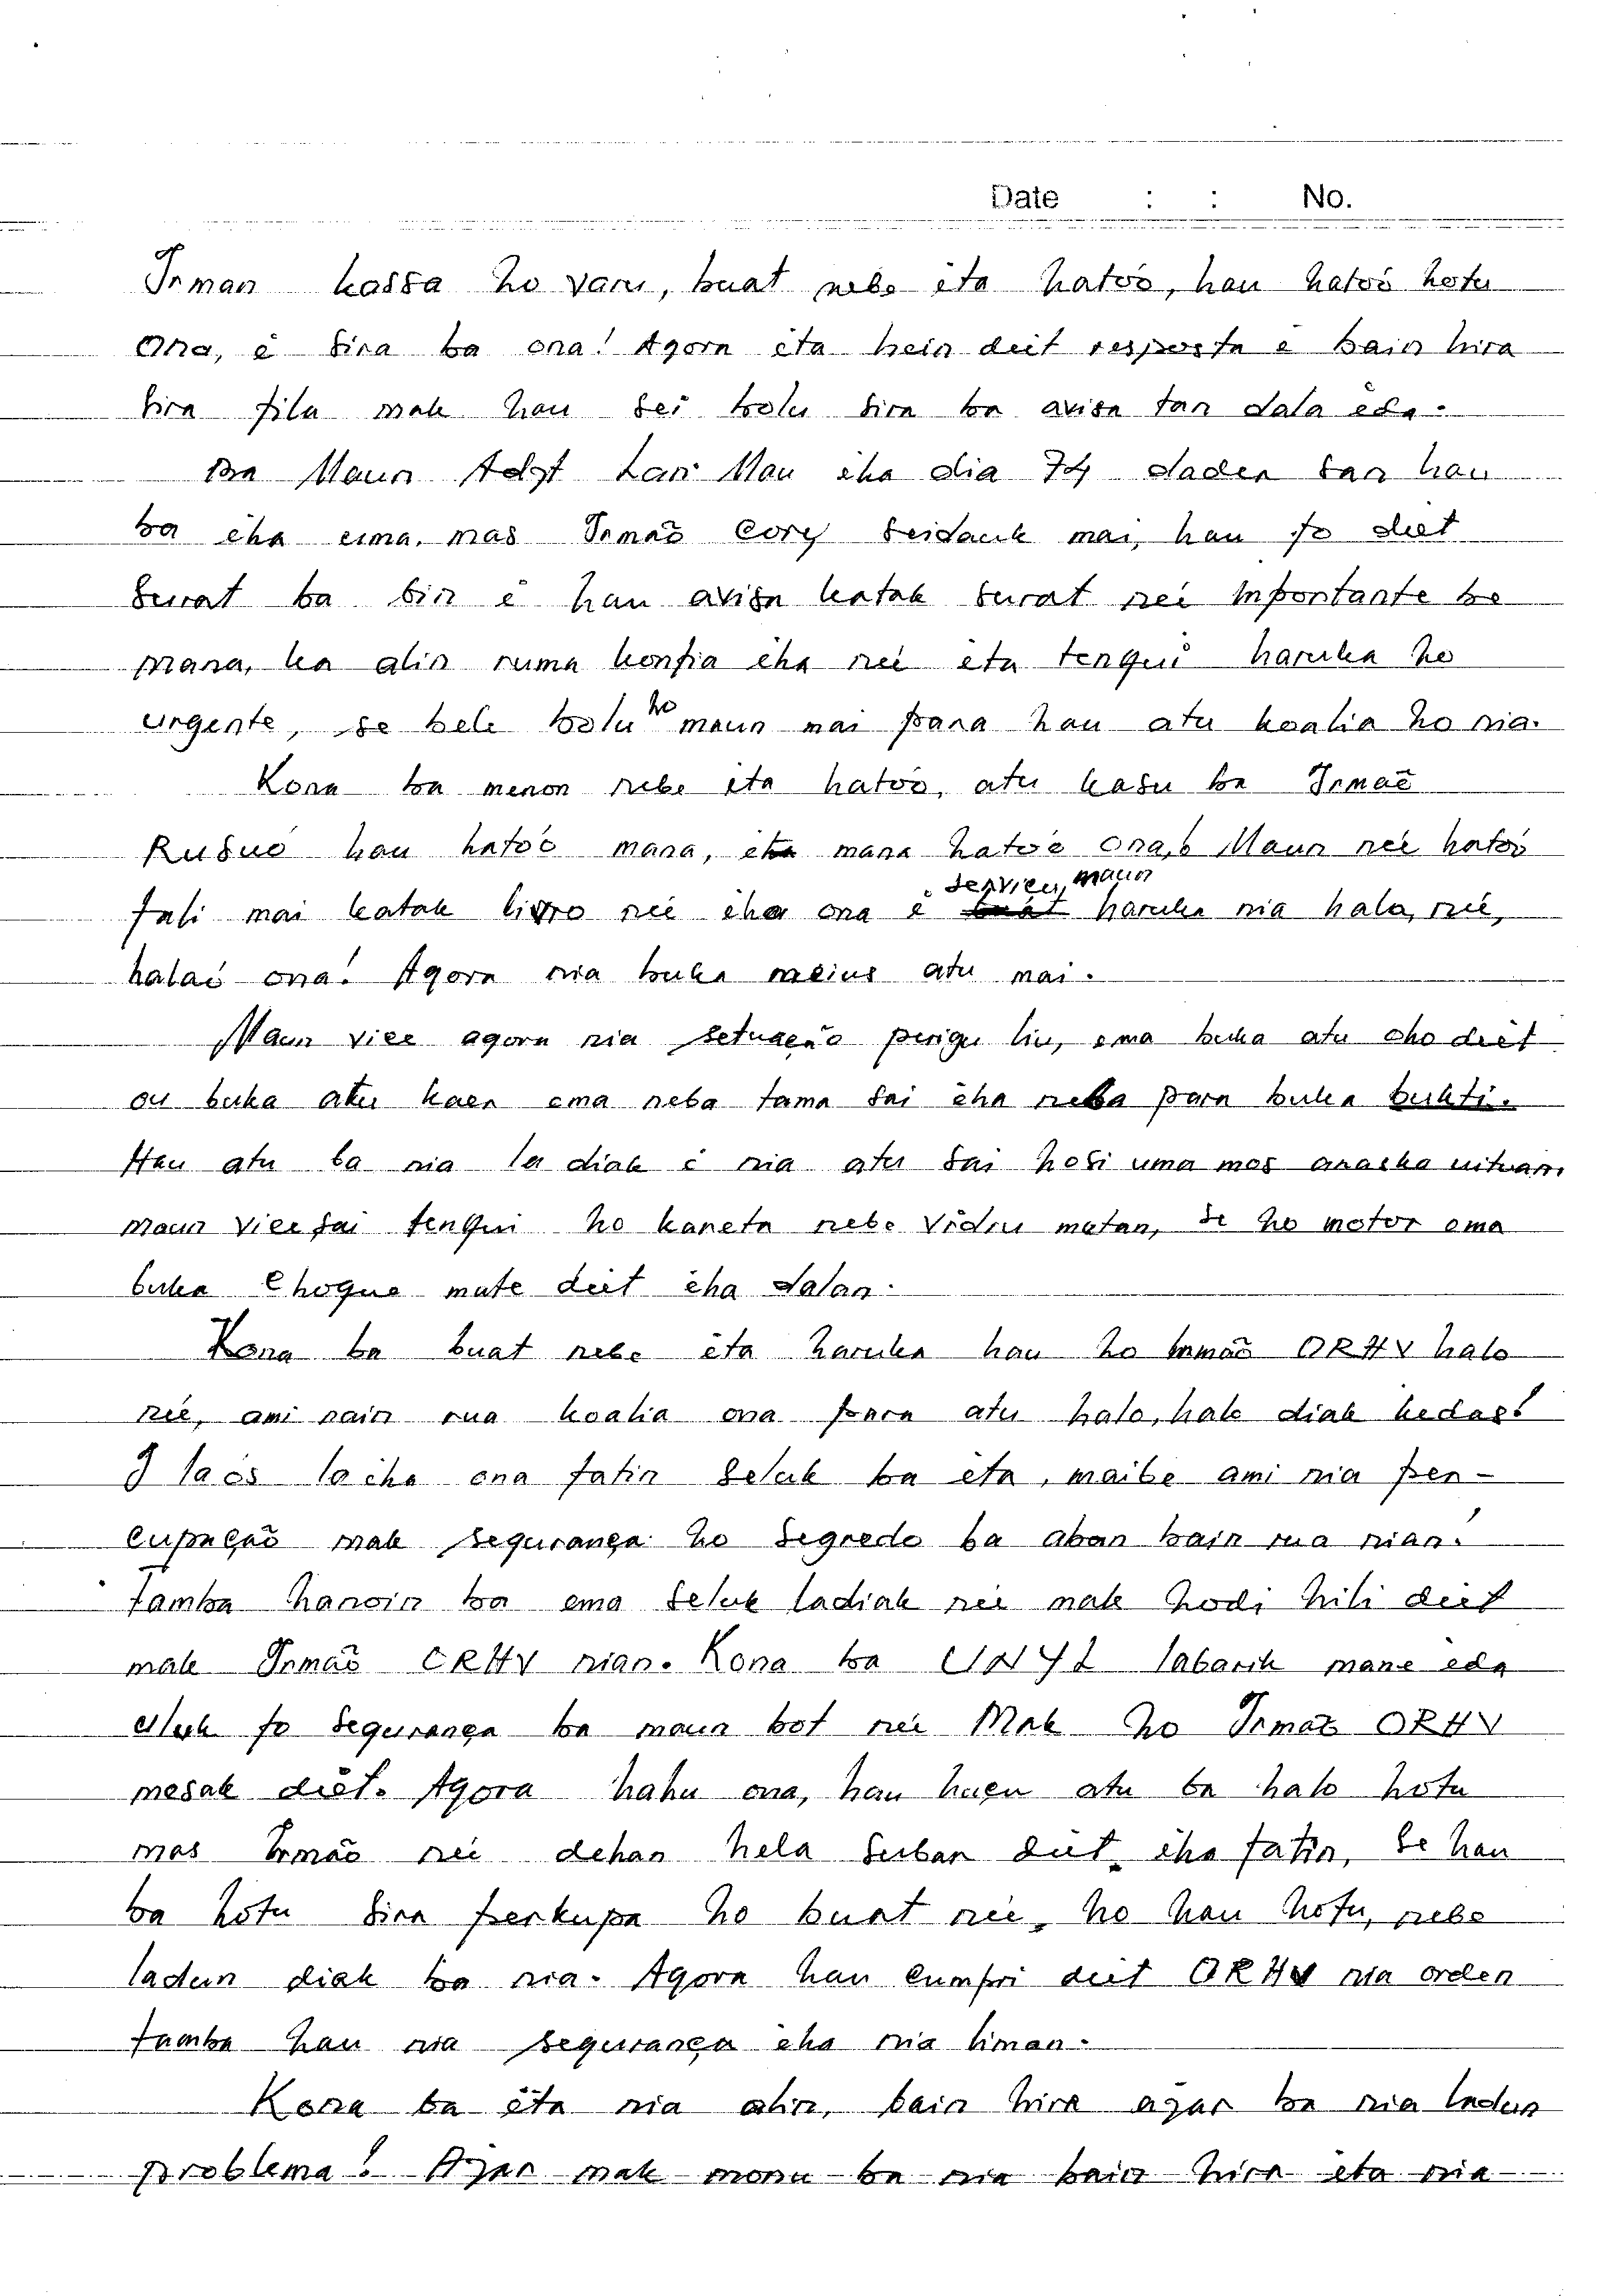 Date : : No.
Irman kassa ho vani, buat nebe ita hatoo, hau hatoo hotu
ona, e sira ba ona! Agora ita hein deit resposta e bain hira
sira fila mak hau sei bolu sira ba avisa tan dala eda.
Ba Maun Adgt Lari Mau iha dia 74 dader san hau
ba iha uma. mas Irmaõ Cory seidauk mai, hau fo deit
surat ba bin e hau avisa katak surat nei Inportante be
mana, ka alin ruma konfia iha nei ita tenqui haruka ho
urgente, se bele bolu ho maun mai para hau atu koalia ho nia.
Kona ba menon nebe ita hatoo, atu kasu ba Irmaõ
Rusuo hau hatoo mana, mana hatoo ona, Maun nei hatoo
fali mai katak livro nei iha ona e servicu, maun haruka nia halo, nee,
halai ona! Agora nia buka meius atu mai.
Maun vice agora nia setuacão perigu liu, ema buka atu oho deit
ou buka atu kaer ema neba tama sai iha neba para buka bukti.
Hau atu ba nia la diak e nia atu sai hosi uma mos araska uituan.
maun vice sai tenqui ho kareta nebe vidru metan, se ho motor ema
buka Choque mate deit iha dalan.
Kona ba buat nebe ita haruka hau ho Irmaõ ORHV halo
nee, ami nain rua koalia ona para atu halo, halo diak kedas!
I laos la iha ona fatin seluk ba ita, maibe ami nia per-
cupação mak seguranca ho segredo ba aban bain rua nian!
tamba hanoin ba ema seluk ladiak nei mak hodi hili deit
mak Irmaõ ORHV nian. Kona ba labarik mane eda
uluk fo seguranca ba maun bot nei Mak ho Irmaõ ORHV
mesak deit. Agora hahu ona, hau hakeu atu ba halo hotu
mas Irmaõ nei dehan hela subar deit iha fatin, se hau
ba hotu sira perkupa ho buat nee, ho hau hotu, nebe
ladun diak ba nia. Agora hau cumpri deit ORHV nia orden
tamba hau nia seguranca iha nia liman.
Kona ba ita nia alin, bain hira agar ba nia ladun
problema! Agar mak monu ba nia bain hira ita nia